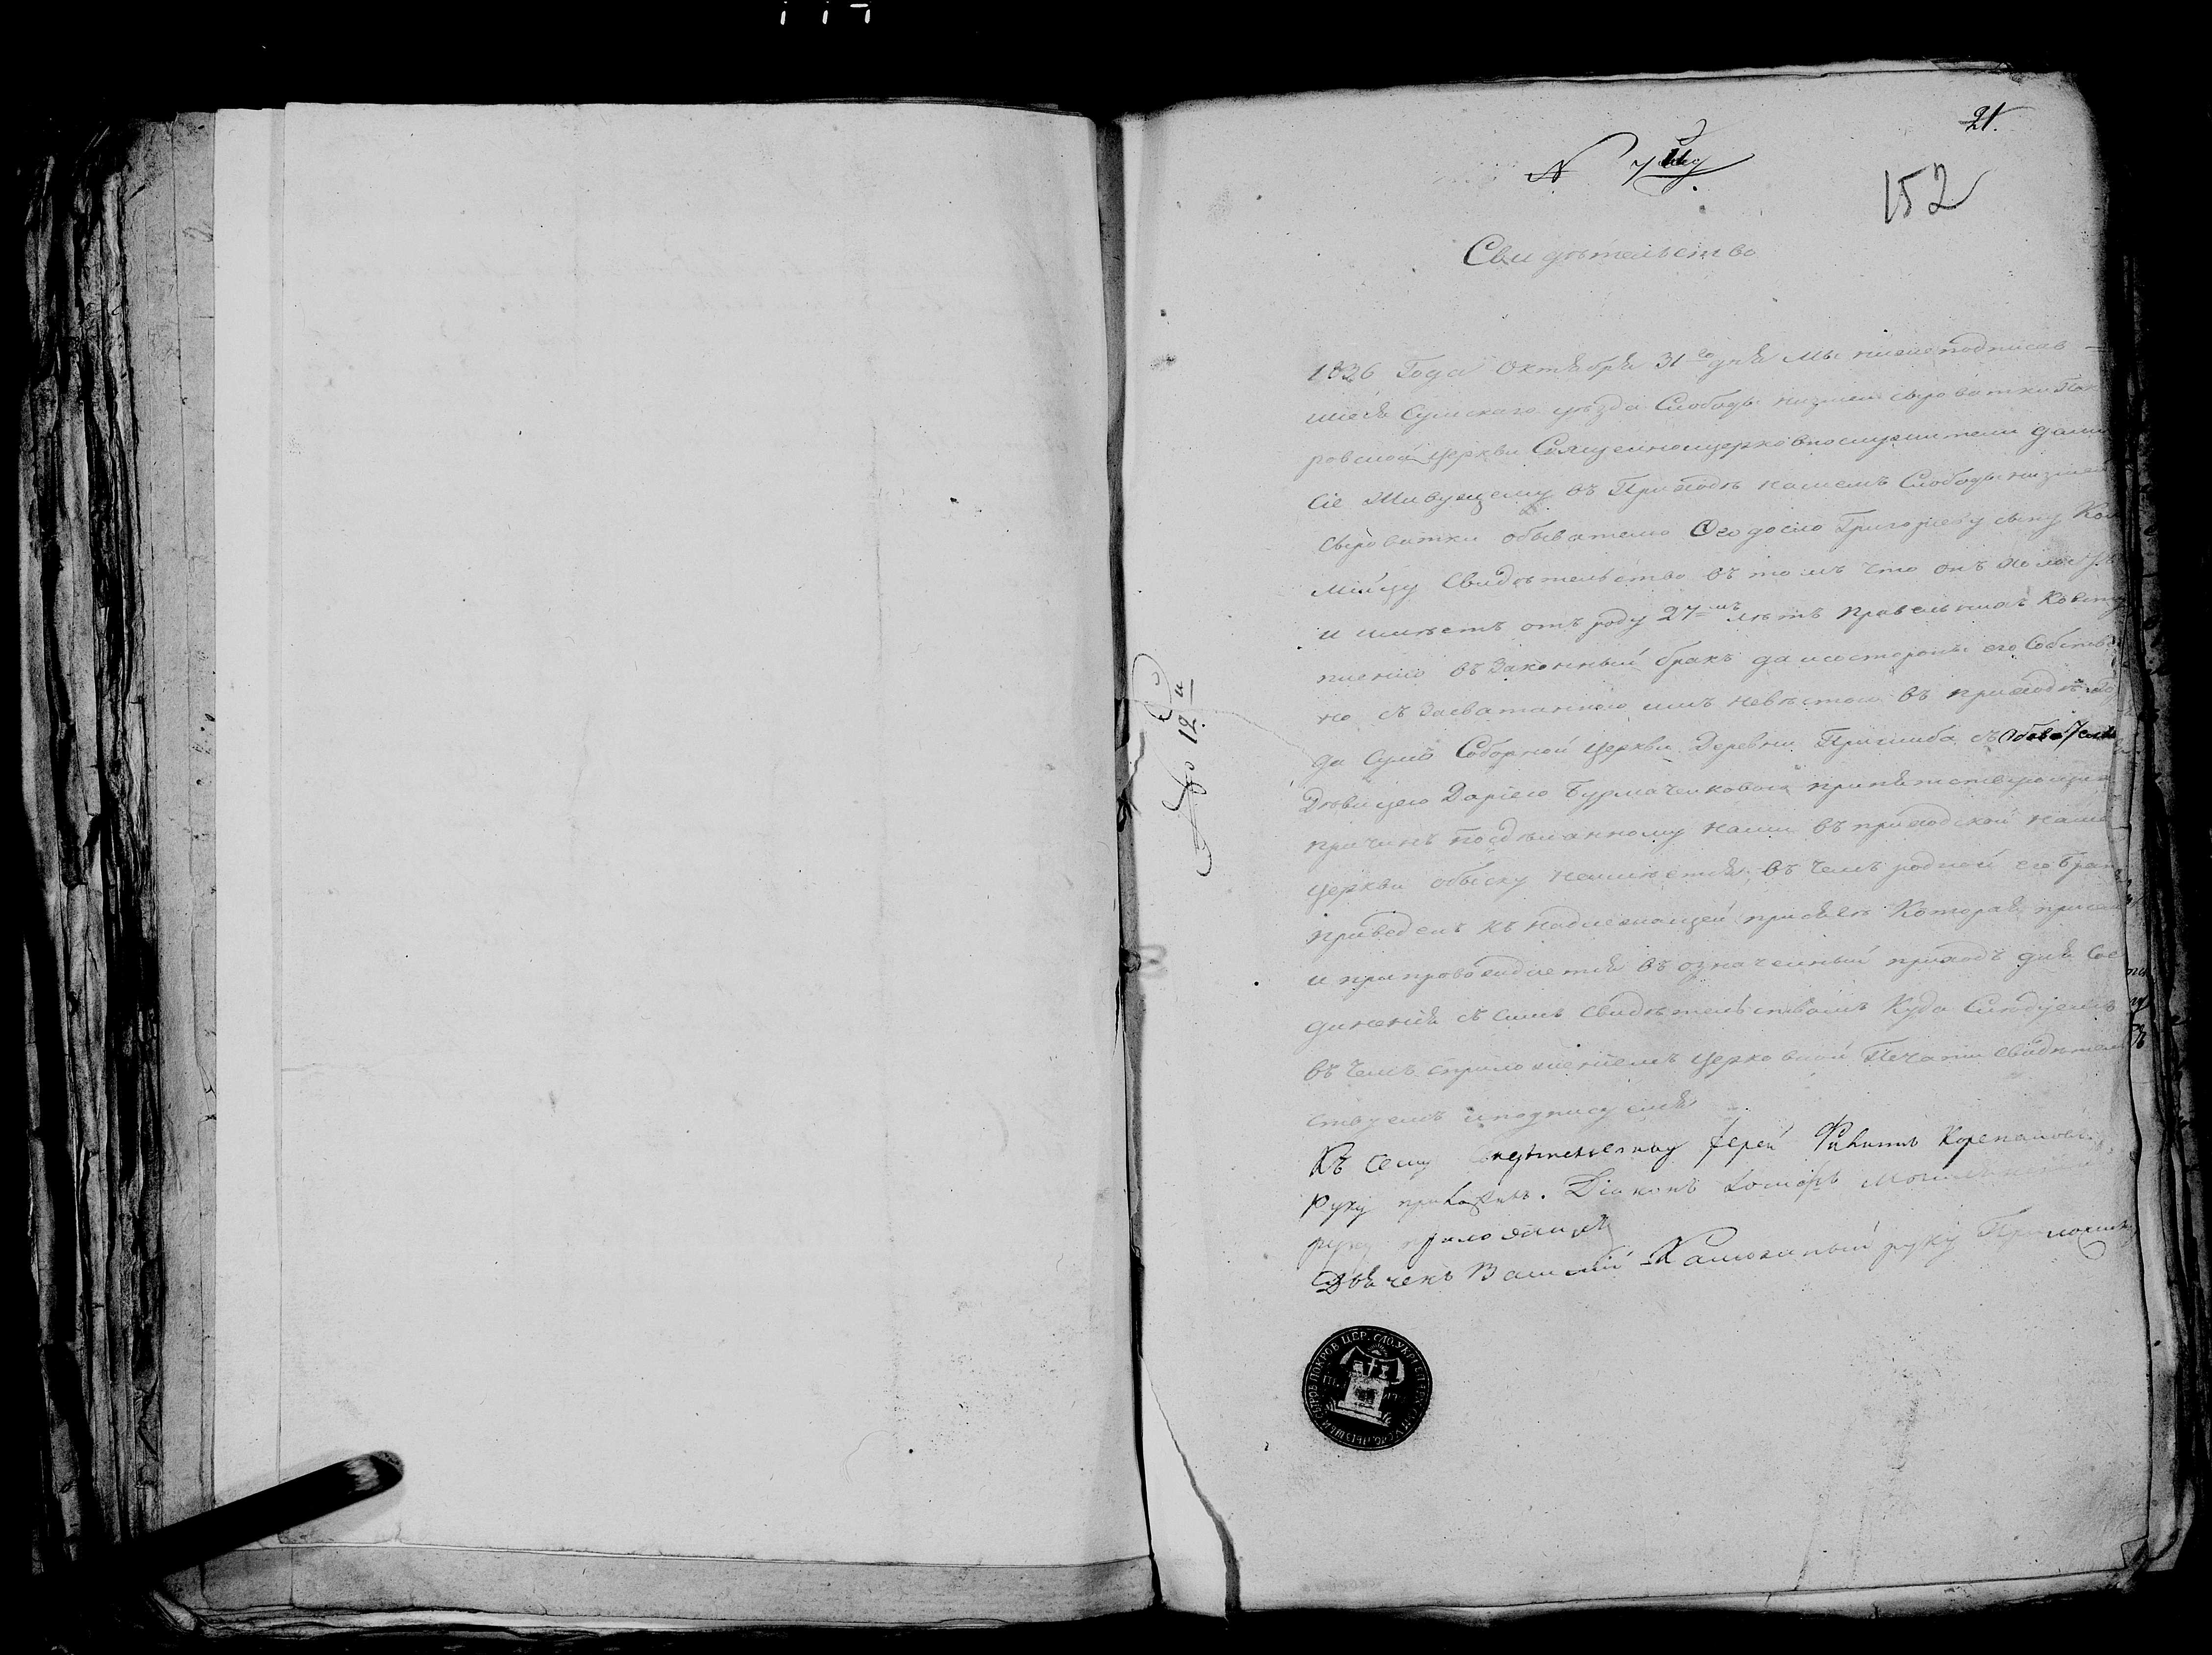 21.
N 7
152
Свидѣтельство
1836 Года Октября 31го дня мы нижеподписав-
шіеся Сумскаго уѣзда Слободы низшей сыроватки Пок
ровской церкви Священноцерковнослужители дали
сіе Живущему въ Приходѣ нашемъ Слободы низшей
сыроватки обывателю Ѳеодосію Григоріеву сыну
Свидѣтельство въ томъ что онъ холостъ
и имѣетъ отъ роду 27мъ лѣтъ Правельныхъ Ковсту
пленію въ Законный бракъ да исостороны его Собстве
но съ Засватанною имъ невѣстою въ приходѣ
да Сумъ Соборной церкви Деревни съ
Дѣвицею Даріею Бурмаченковою препятствующих
причинъ поздѣланному нами въ приходской наше
церкви обыску неимѣется; въ чемъ родной его Брат
приведенъ къ надлежащей присягѣ Которая присем
и препровождается въ означенный приходъ для Сое
диненія съ симъ свидѣтельствомъ Куда Слюдуемъ
въ чемъ сприложеніемъ церковной Печати свидѣтель
ствуемъ иподписуемся
Къ сему Свидѣтельству Іерей Филипъ
руку приложилъ. Діаконъ
руку приложилъ
Дьячекъ Василій руку Приложилъ
До 12 и
ПОКРОВ. ЦЕР. СЛО. УКР.